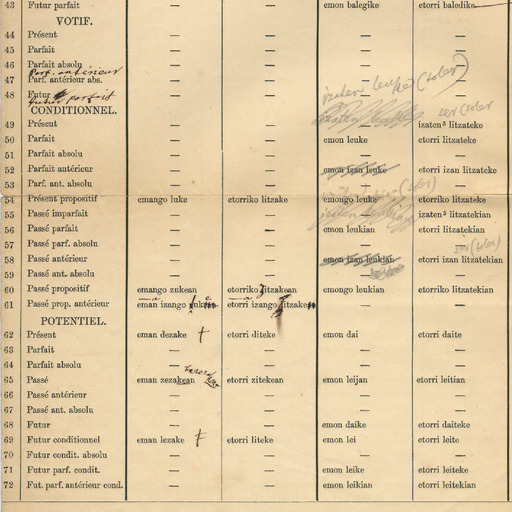 43 Futur parfait — — emon balegike etorri baledike
VOTIF.
44 Présent — — — —
45 Parfait — — — —
46 Parfait absolu — — — —
Parf. antérieur
47 Parf. antérieur abs. — — — —
48 Futur — — — —
futur parfait
CONDITIONNEL.
49 Présent — — izaten litzateke
50 Parfait — — emon leuke etorri litzateke
51 Parfait absolu — — — —
52 Parfait antérieur — — emon izan leuke etorri izan litzateke
53 Parf. ant. absolu — — — —
54 Présent propositif emango luke etorriko litzake emongo leuke etorriko litzateke
55 Passé imparfait — — izaten litzatekian
56 Passé parfait — — emon leukian etorri litzatekian
57 Passé parf. absolu — — — —
58 Passé antérieur — — emon izan leukian etorri izan litzatekian
59 Passé ant. absolu — — —
60 Passé propositif emango zukean etorriko litzakean emongo leukian etorriko litzatekian
61 Passé prop. antérieur eman izango etorri izango litzakeen — —
POTENTIEL.
62 Présent eman dezake etorri diteke emon dai etorri daite
63 Parfait — — — —
64 Parfait absolu — — — —
65 Passé eman zezakean etorri zitekean emon leijan etorri leitian
66 Passé antérieur — — — —
67 Passé ant. absolu — — — —
68 Futur — — emon daike etorri daiteke
69 Futur conditionnel eman lezake etorri liteke emon lei etorri leite
70 Futur condit. absolu — — — —
71 Futur parf. condit. — — emon leike etorri leiteke
72 Fut. parf. antérieur cond. — — emon leikian etorri leitekian